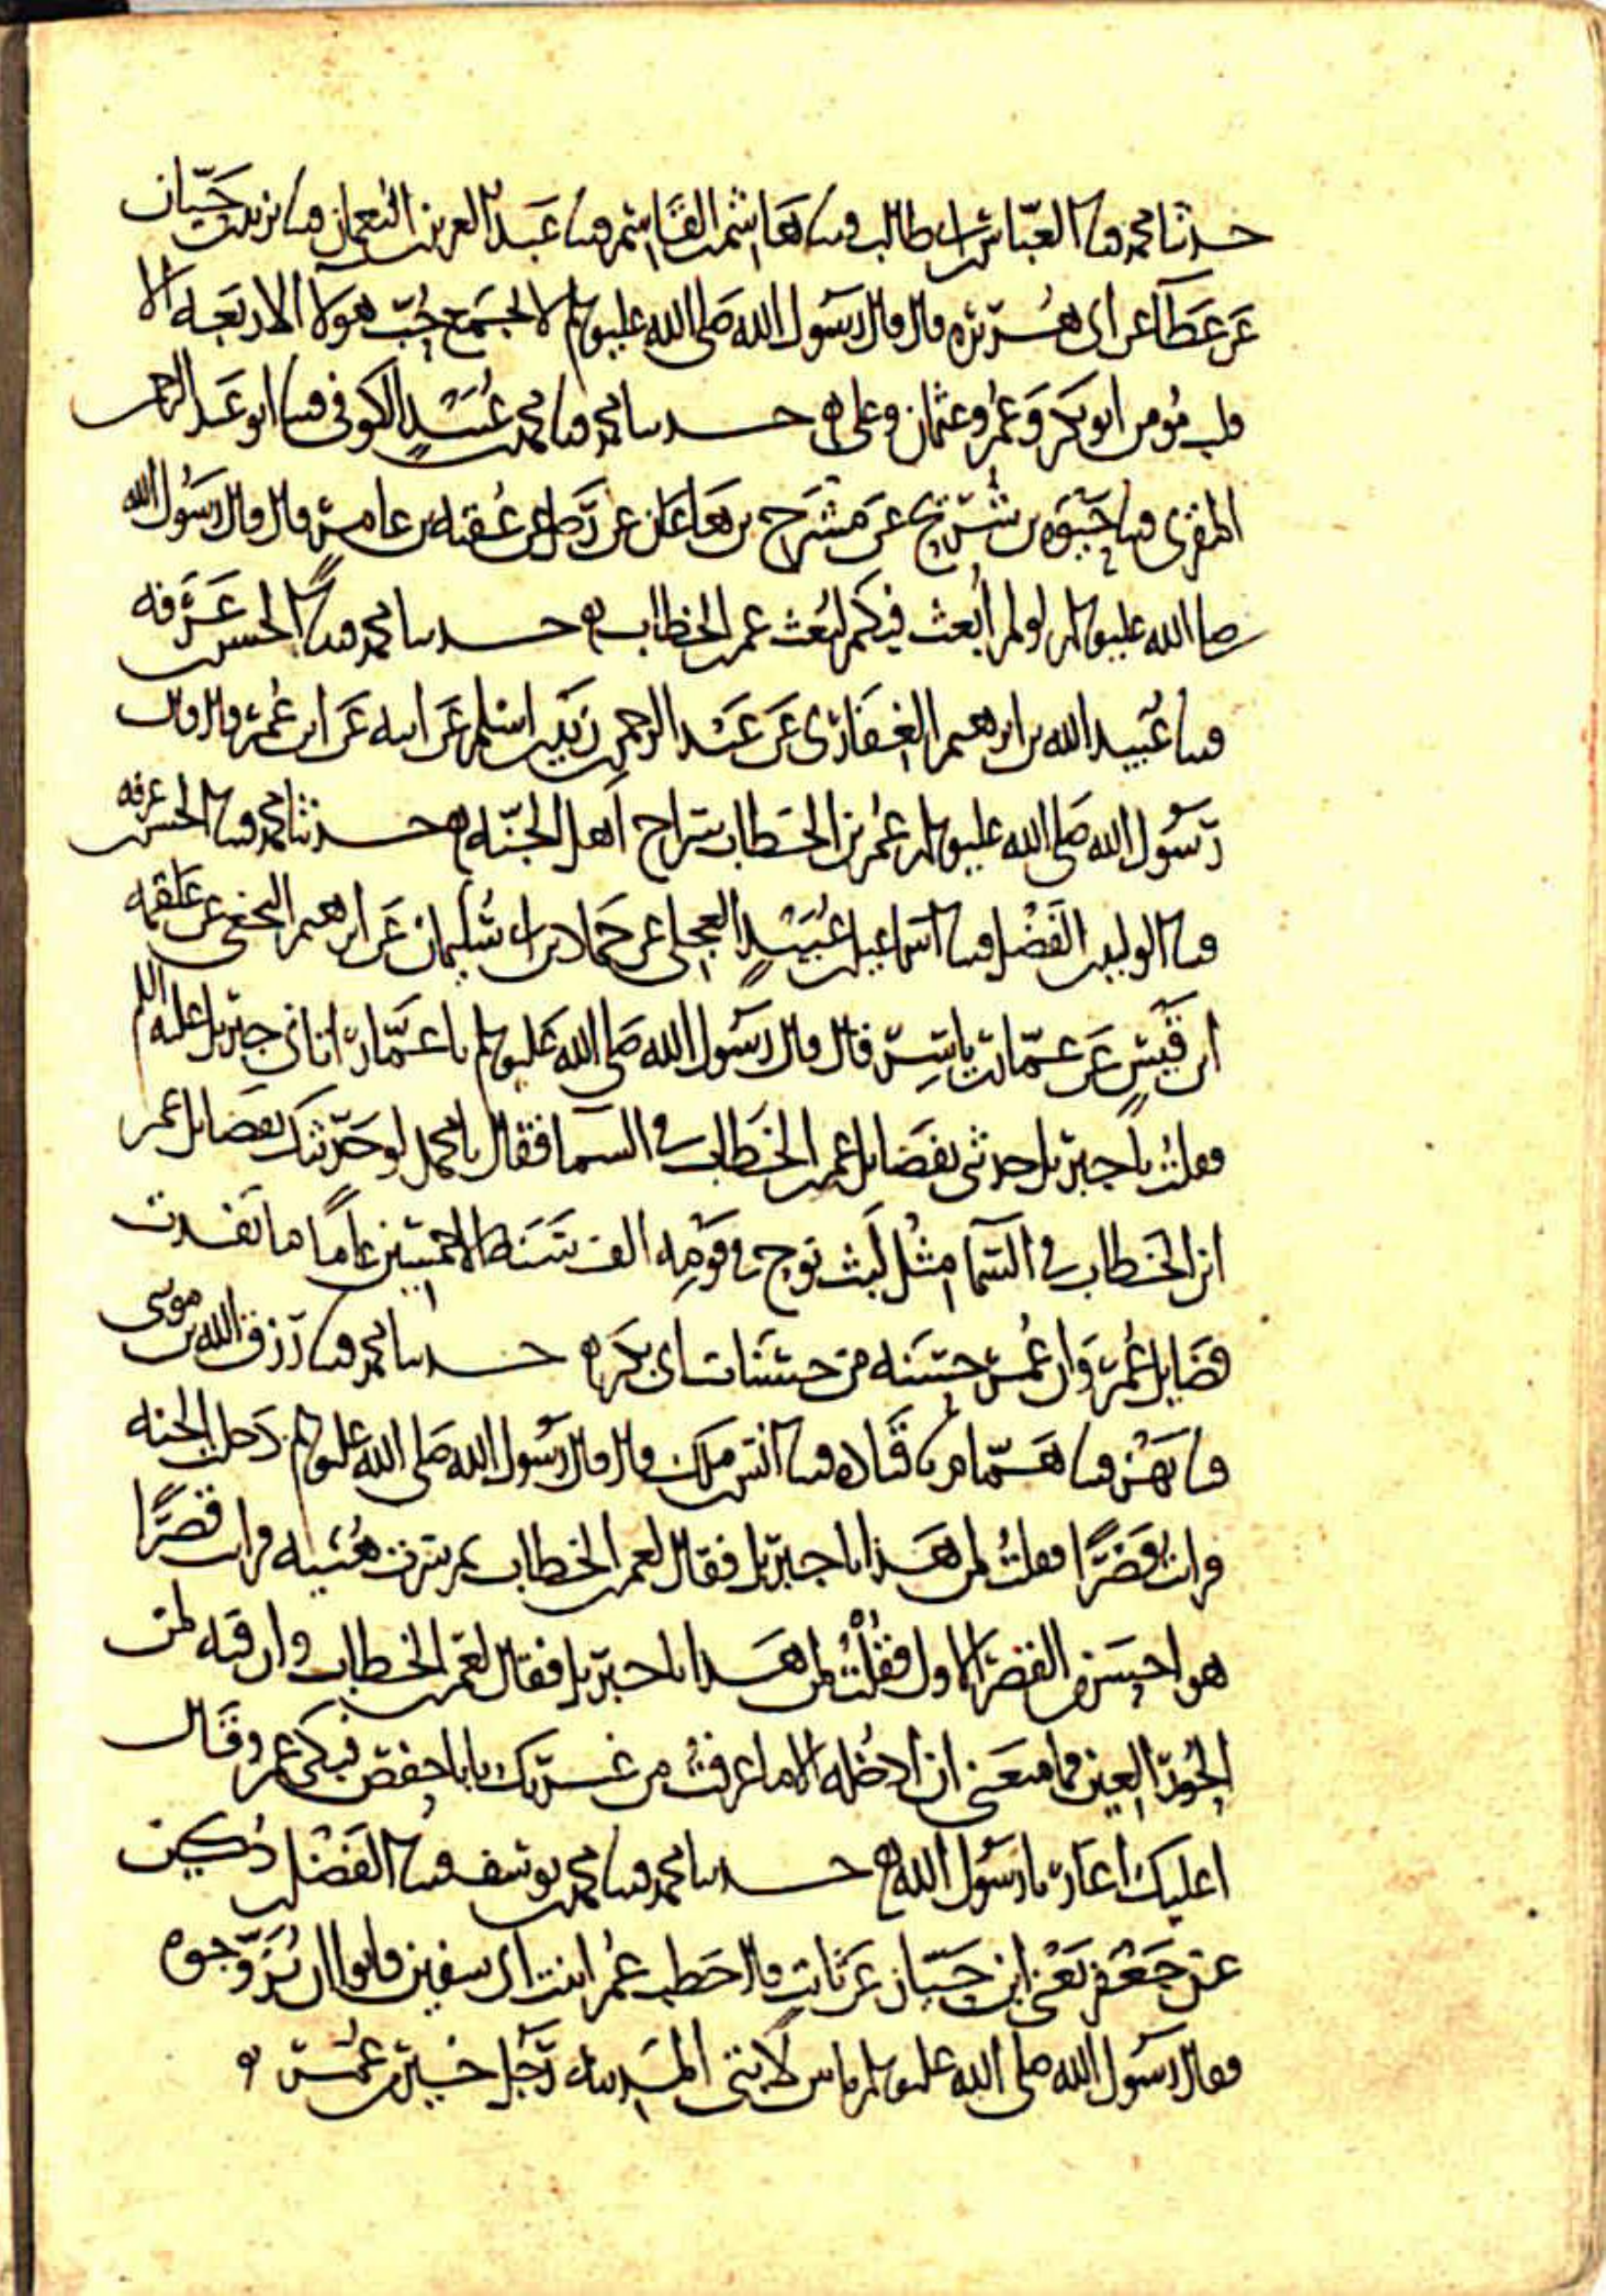 حدثنا محمد قثنا العباس بن ابي طالب قثنا هاشم بن القاسم قثنا عبد العزيز بن النعمان قثنا يزيد بن حيان
عن عطا عن ابي هريرة قال قال رسول الله صلى الله عليه وسلم لا يجتمع حب هولا الاربعه الا
قلب مومن ابو بكر وعمر وعثمان وعلي حدثنا محمد قثنا محمد بن عبيد الكوفي قثنا ابو عبد الرحمن
المقري قثنا حيوه بن شريح عن مشرح بن هاعان عن رجل عن عقبه بن عامر قال قال رسول الله
صلى الله عليه وسلم لو لم ابعث فيكم لبعث عمر بن الخطاب حدثنا محمد قثنا الحسن بن عرفه
قثنا عبيد الله بن ابرهيم الغفاري عن عبد الرحمن بن زيد بن اسلم عن ابيه عن ابن عمر قال قال
رسول الله صلى الله عليه وسلم عمر بن الخطاب سراج اهل الجنه حدثنا محمد قثنا الحسن بن عرفه
قثنا الوليد بن الفضل قثنا اسماعيل بن عبيد العجلي عن حماد بن ابي سليمان عن ابرهيم النخعي عن علقمه
ابن قيس عن عمار بن ياسر قال قال رسول الله صلى الله عليه وسلم يا عمار اتاني جبريل عليه السلم
فقلت يا جبريل حدثني بفضايل عمر بن الخطاب في السما فقال يا محمد لو حدثتك بفضايل عمر
ابن الخطاب في السما مثل لبث نوح في قومه الف سنة الا خمسين عاما ما نفدت
فضايل عمر وان عمر حسنه من حسنات ابي بكر حدثنا محمد قثنا رزق الله بن موسى
قثنا بهز قثنا همام قثنا قتاده قثنا انس بن ملك قال قال رسول الله صلى الله عليه وسلم دخلت الجنه
فرايت قصرا فقلت لمن هذا يا جبريل فقال لعمر بن الخطاب ثم سرت هنيه فرايت قصرا
هو احسن من القصر الاول فقلت لمن هذا يا جبريل فقال لعمر بن الخطاب وان فيه لمن
الحور العين فما منعني ان ادخله الا ما عرفت من غيرتك يا با حفص فبكى عمر وقال
اعليك اغار يا رسول الله حدثنا محمد قثنا محمد بن يوسف قثنا الفضل بن دكين
عن جعفر يعني ابن حيان عن ثابت قال خطب عمر ابنت ابي سفين فابوا ان يزوجوه
فقال رسول الله صلى الله عليه وسلم ما بين لابتي المدينه رجل خير من عمر